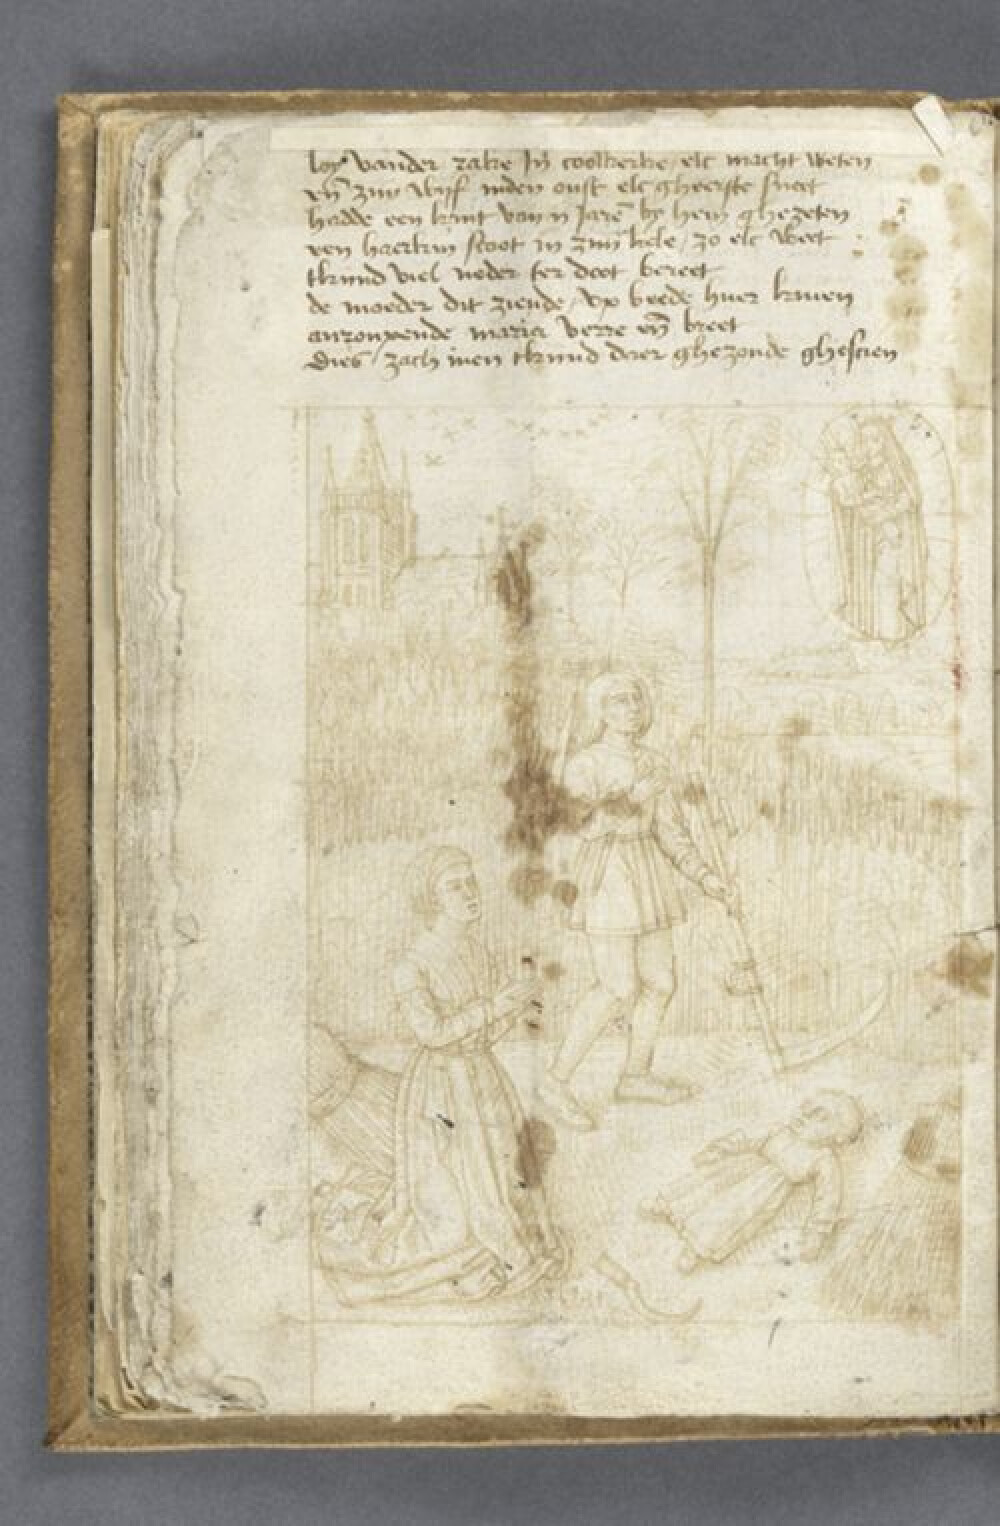 loy vander zake Jn̄ coolkerke / elc macht weten
en̄ zijn wijf inden oust elc gheerste sneet
hadde een kint van ij Jarē by hem ghezeten
een haerkin scoot in zijn kele / zo elc weet
tkijnd viel neder ter doot bereet
de moeder dit ziende / vp beede huer knien
anroupende maria verre en̄ breet
Dies / zach men tkijnd daer ghezonde ghescien